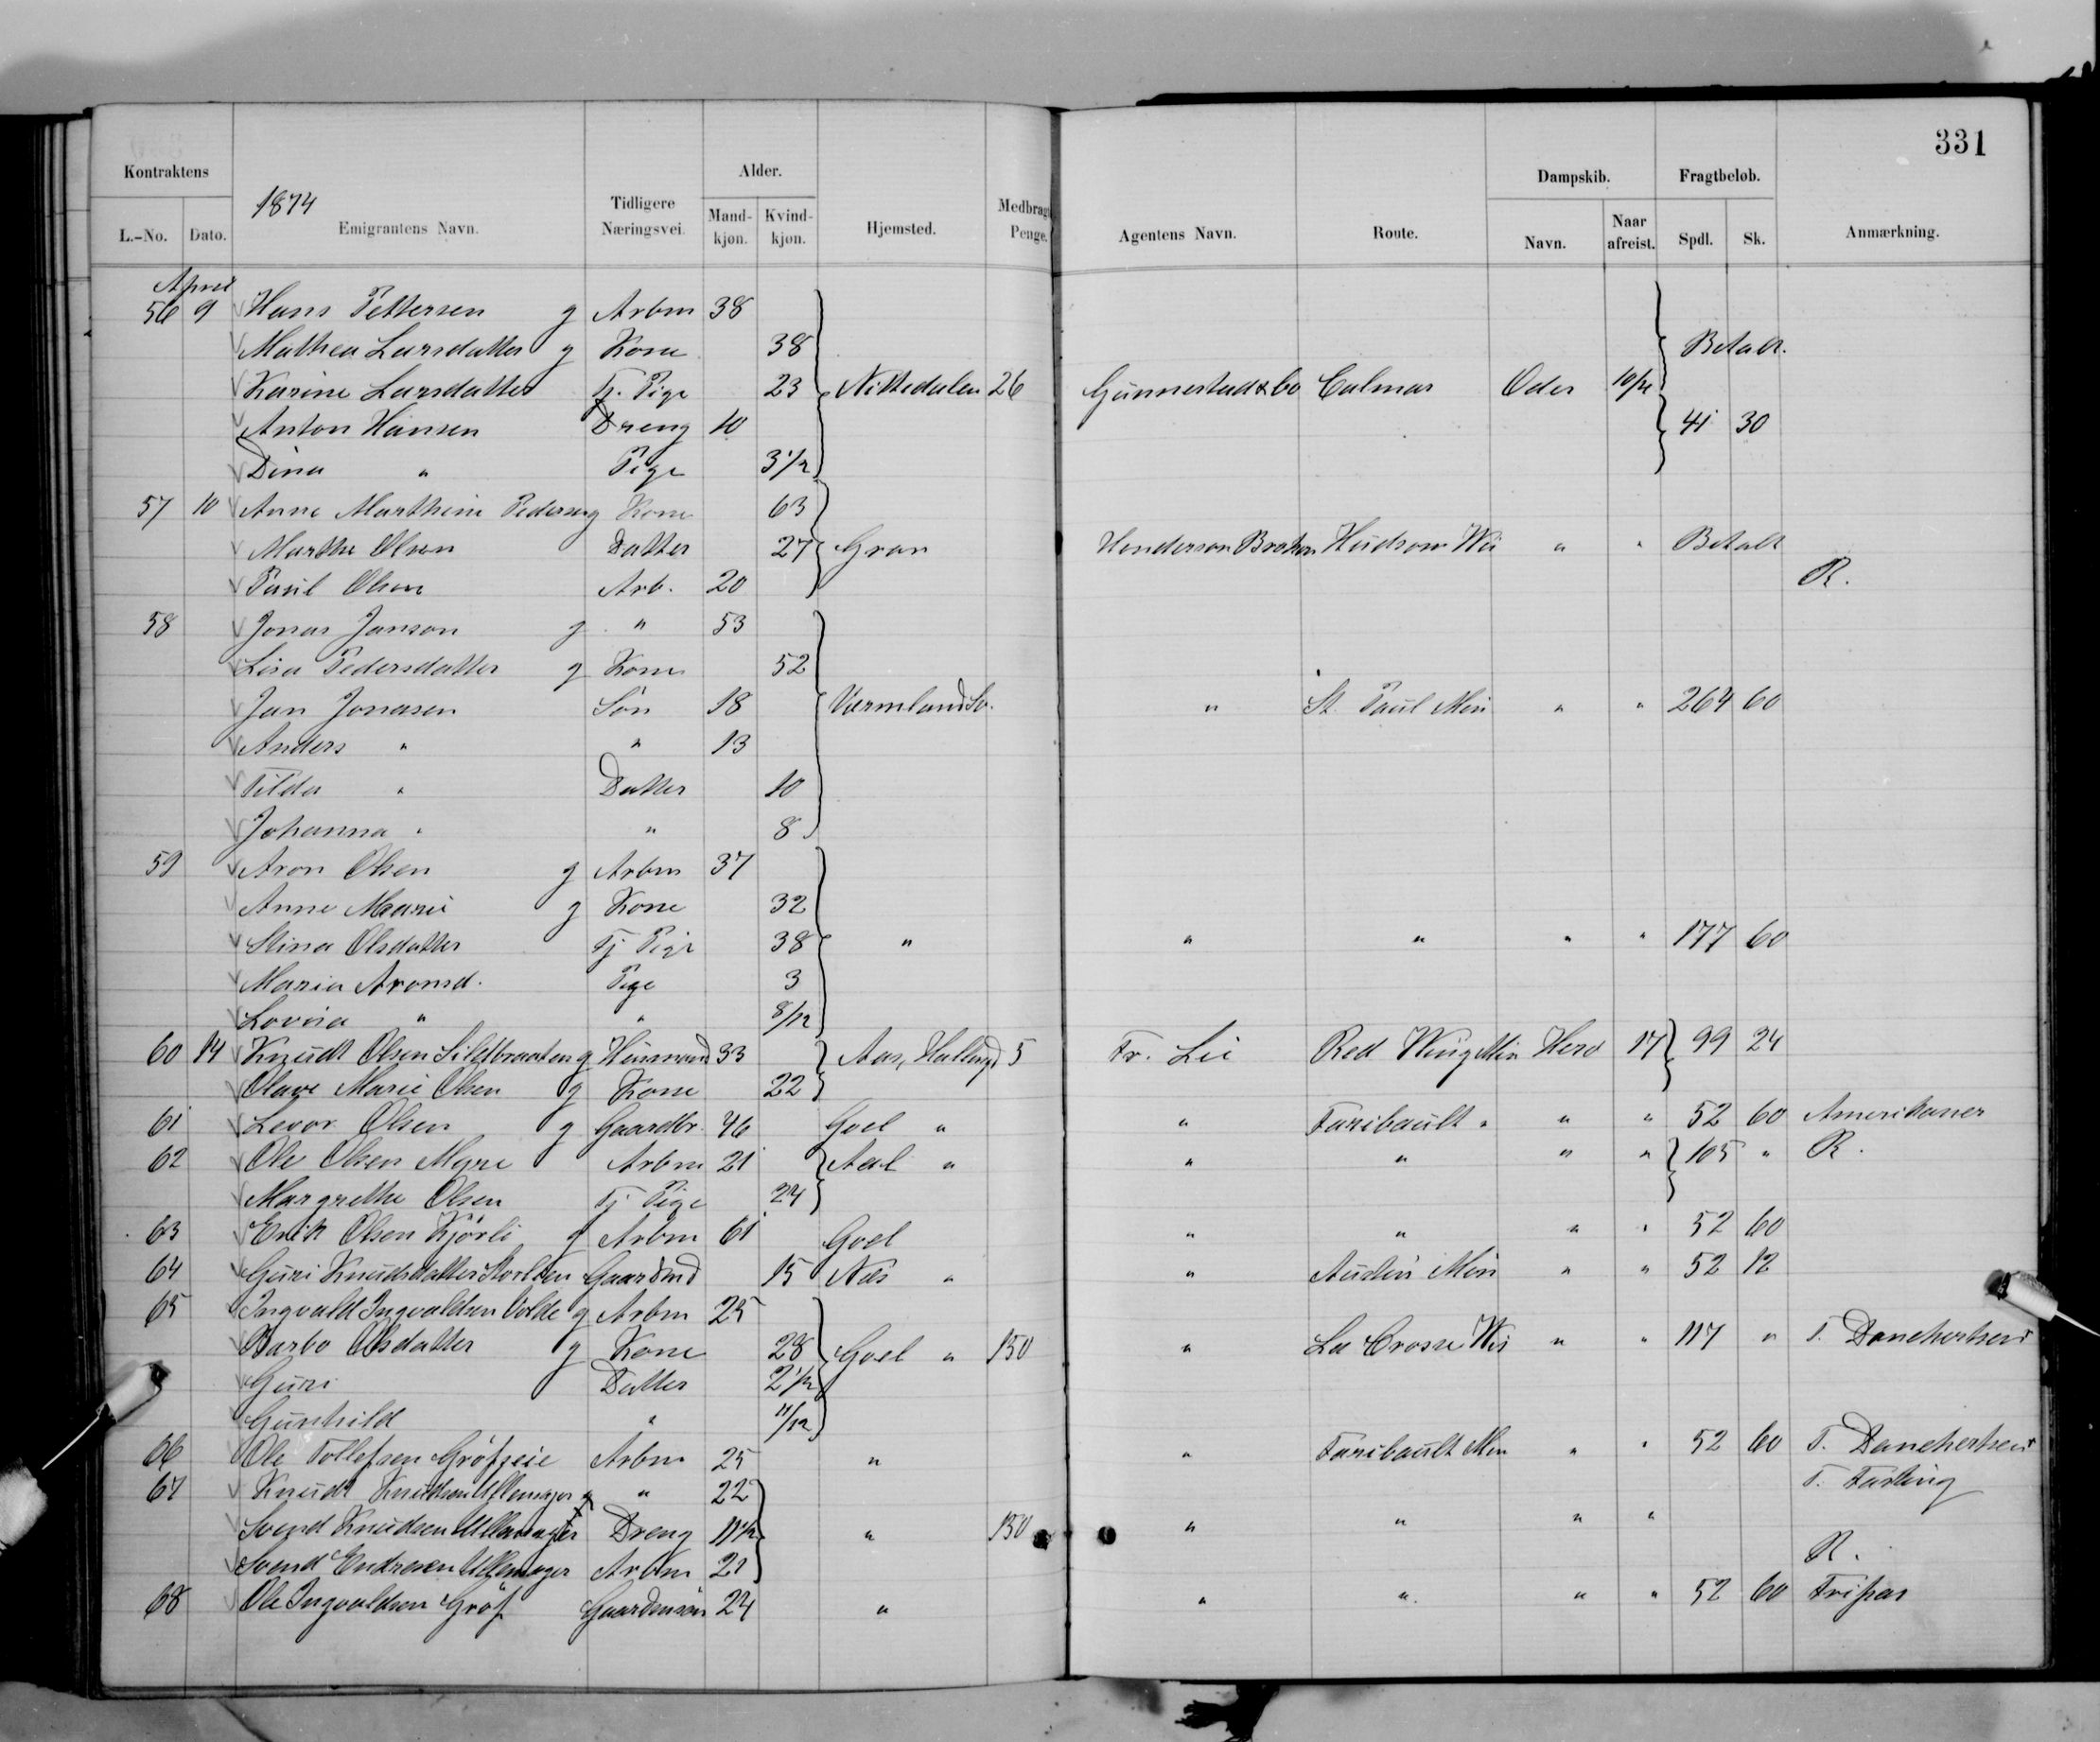 331
Kontraktens Alder. Dampskib. Fragtbeløb.
1874
L.-No. Dato. Emigrantens Navn. Tidligere Næringsvei. Mandkjøn. Kvindkjøn. Hjemsted. Medbragt Penge. Agentens Navn. Route. Navn. Naar afreist. Spdl. Sk. Anmærkning.
April
56 9 Hans Pettersen g Arbm 38
Mathea Larsdatter g Kone 38 Betalt.
Karine Larsdatter Tj. Pige 23 Nittedalen 26 Gunnestad & Co Calmar Oder 10/4
Anton Hansen Dreng 10 41 30
Dina " Pige 3 1/2
57 10 Anne Marthine Pedersen g Kone 63
Marthe Olsen Datter 27 Gran Henderson Brothers Hudson Wis " " Betalt
Paul Olsen Arb. 20 R.
58 Jonas Janson g " 53
Lisa Pedersdatter g Kone 52
Jan Jonasen Søn 18 Varmland Sv. " St. Paul Min " " 264 60
Anders " " 13
Tilda " Datter 10
Johanna " " 8
59 Aron Olsen g Arbm 37
Anne Marie g Kone 32
Stina Olsdatter Tj Pige 38 " " " " " 177 60
Maria Aronsd. Pige 3
Lovisa " " 8/12
60 14 Knudt Olsen Sildbraaten g Husmand 33 Aas, Hallingd 5 Fr. Lie Red Wing Min Hero 17 99 24
Olave Marie Olsen g Kone 22
61 Levor Olsen g Gaardbr. 46 Goel " " Faribault " " " 52 60 Amerikaner
62 Ole Olsen Myre Arbm 21 Aal " " " " " 105 " R.
Margrethe Olsen Tj Pige 24
63 Erik Olsen Kjørli g Arbm 61 Goel " " " " 52 60
64 Guri Knudsdatter Gaardmd 15 Næs " " Austin Min " " 52 12
65 Ingvald Ingvaldsen Volde g Arbm 25
Barbo Olsdatter g Kone 28 Goel " 150 " La Crosse Wis " " 117 " T. Danehertsen
Guri Datter 2 1/2
Gunhild " 11/12
66 Ole Tollefsen Gröfseie Arbm 25 " " Faribault Min " " 52 60 T. Danehertsen
67 Knudt Knudsen Ullensager g " 22 T.
Svend Knudsen Ullensager Dreng 11 1/2 " 150 " " " "
Svend Endresen Ullensager Arbm 21 R.
68 Ole Ingvaldsen Gröf Gaardmsøn 24 " " " " " 52 60 Fripas